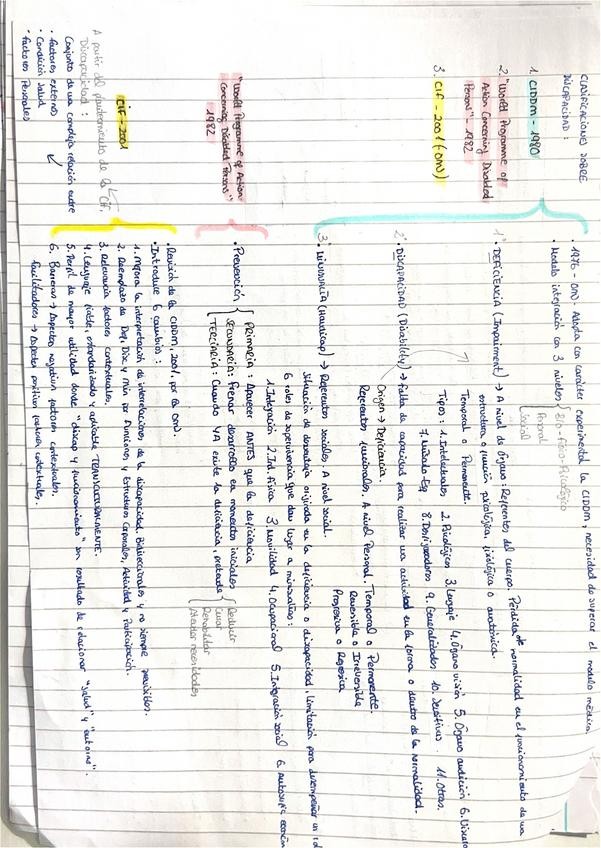 CLASIFICACIONES SOBRE
DISCAPACIDAD:
1. CIDDM - 1980
2. "World Programme of
Action Concerning Disabled
Persons" - 1982
3. CIF - 2001 (OMS)
• 1976 - OMS Adopta con carácter experimental la CIDDM, necesidad de superar el modelo médico
• Modelo integración con 3 niveles
Bio-Físico-Psicológico
Personal
Social
1. DEFICIENCIA (Impairment) → A nivel de órgano: Referentes del cuerpo. Pérdida de normalidad en el funcionamiento de una
estructura o función psicológica, fisiológica o anatómica.
Temporal o Permanente.
Tipos: 1. Intelectuales 2. Psicológicos 3. Lenguaje 4. Órgano visión 5. Órgano audición 6. Viscerales
7. Músculo-Esq 8. Desfiguradoras 9. Generalizadas 10. Sensitivas 11. Otras.
2. DISCAPACIDAD (Disability) → Falta de capacidad para realizar una actividad en la forma o dentro de la normalidad.
Origen → Deficiencia
Referentes funcionales. A nivel Personal. Temporal o Permanente.
Reversible o Irreversible
Progresiva o Regresiva
3. MINUSVALÍA (Handicap) → Referentes sociales. A nivel social.
Situación de desventaja originada en la deficiencia o discapacidad, limitación para desempeñar un
6 roles de supervivencia que dan lugar a minusvalías:
1. Integración 2. Ind. física 3. Movilidad 4. Ocupacional 5. Integración social 6. Autosufic.
"World Programme of Action
Concerning Disabled Persons"
1982
• Prevención
PRIMARIA: Aparecer ANTES que la deficiencia
SECUNDARIA: Frenar desarrollo en momentos iniciales
TERCIARIA: Cuando YA existe la deficiencia, pretende
Reducir
Curar
Rehabilitar
Atender necesidades
CIF - 2001
A partir del planteamiento de la CIF.
Discapacidad:
Conjunto de una compleja relación entre
• Factores externos
• Condición salud
• Factores Personales
• Revisión de la CIDDM, 2001, por la OMS.
• Introduce 6 cambios:
1. Mejora la interpretación de interrelaciones de la discapacidad. Bidireccionales y no siempre previsibles.
2. Reemplazo de Defi, Disc y min por Funciones y Estructuras Corporales, Actividad y Participación.
3. Relevancia factores contextuales.
4. Lenguaje fiable, estandarizado y aplicable TRANSCULTURALMENTE.
5. Perfil de mayor utilidad donde "discap y funcionamiento" son resultado de relacionar "salud" y "entorno".
6. Barreras → Aspectos negativos factores contextuales.
Facilitadores → Aspectos positivos factores contextuales.